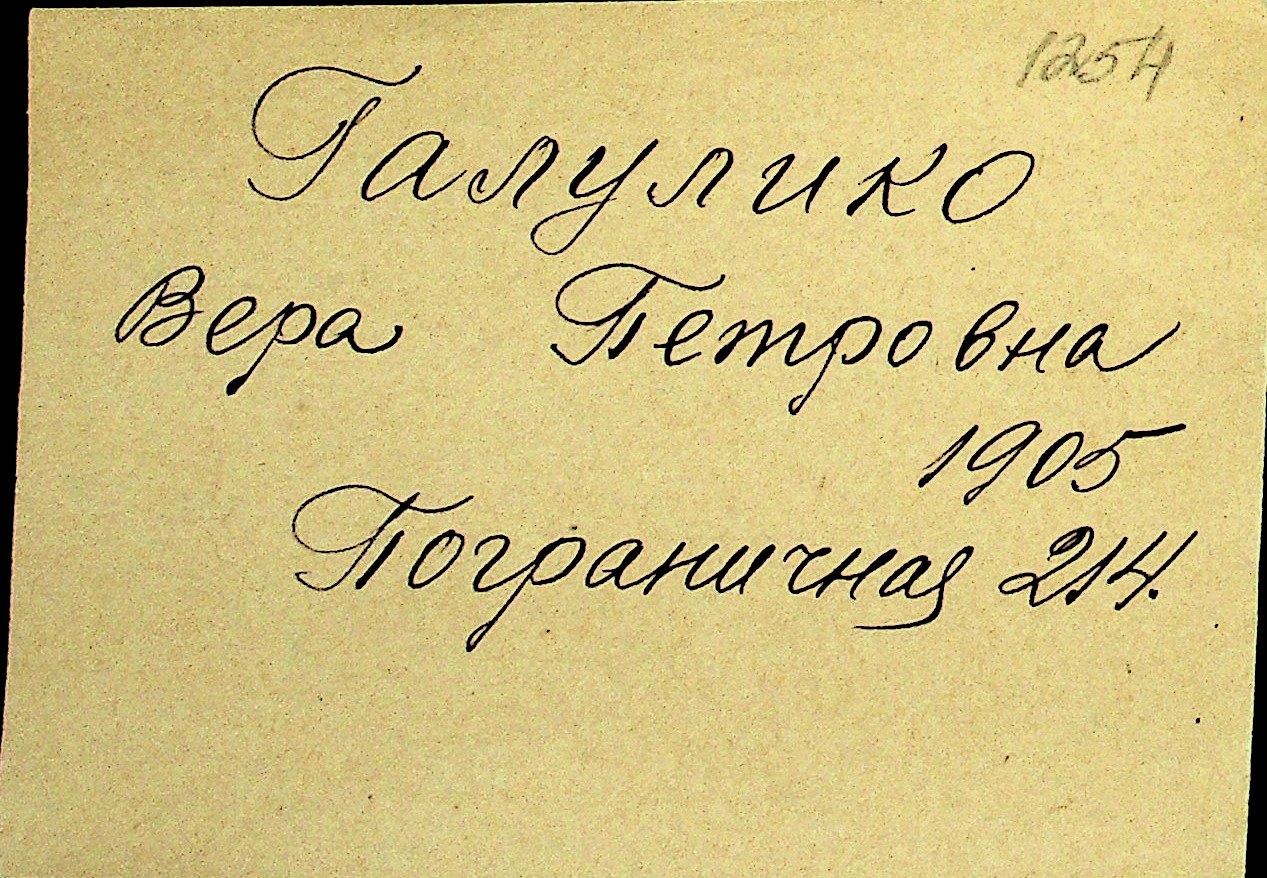 1254
Галулико
Вера Петровна
1905
Пограничная 214.